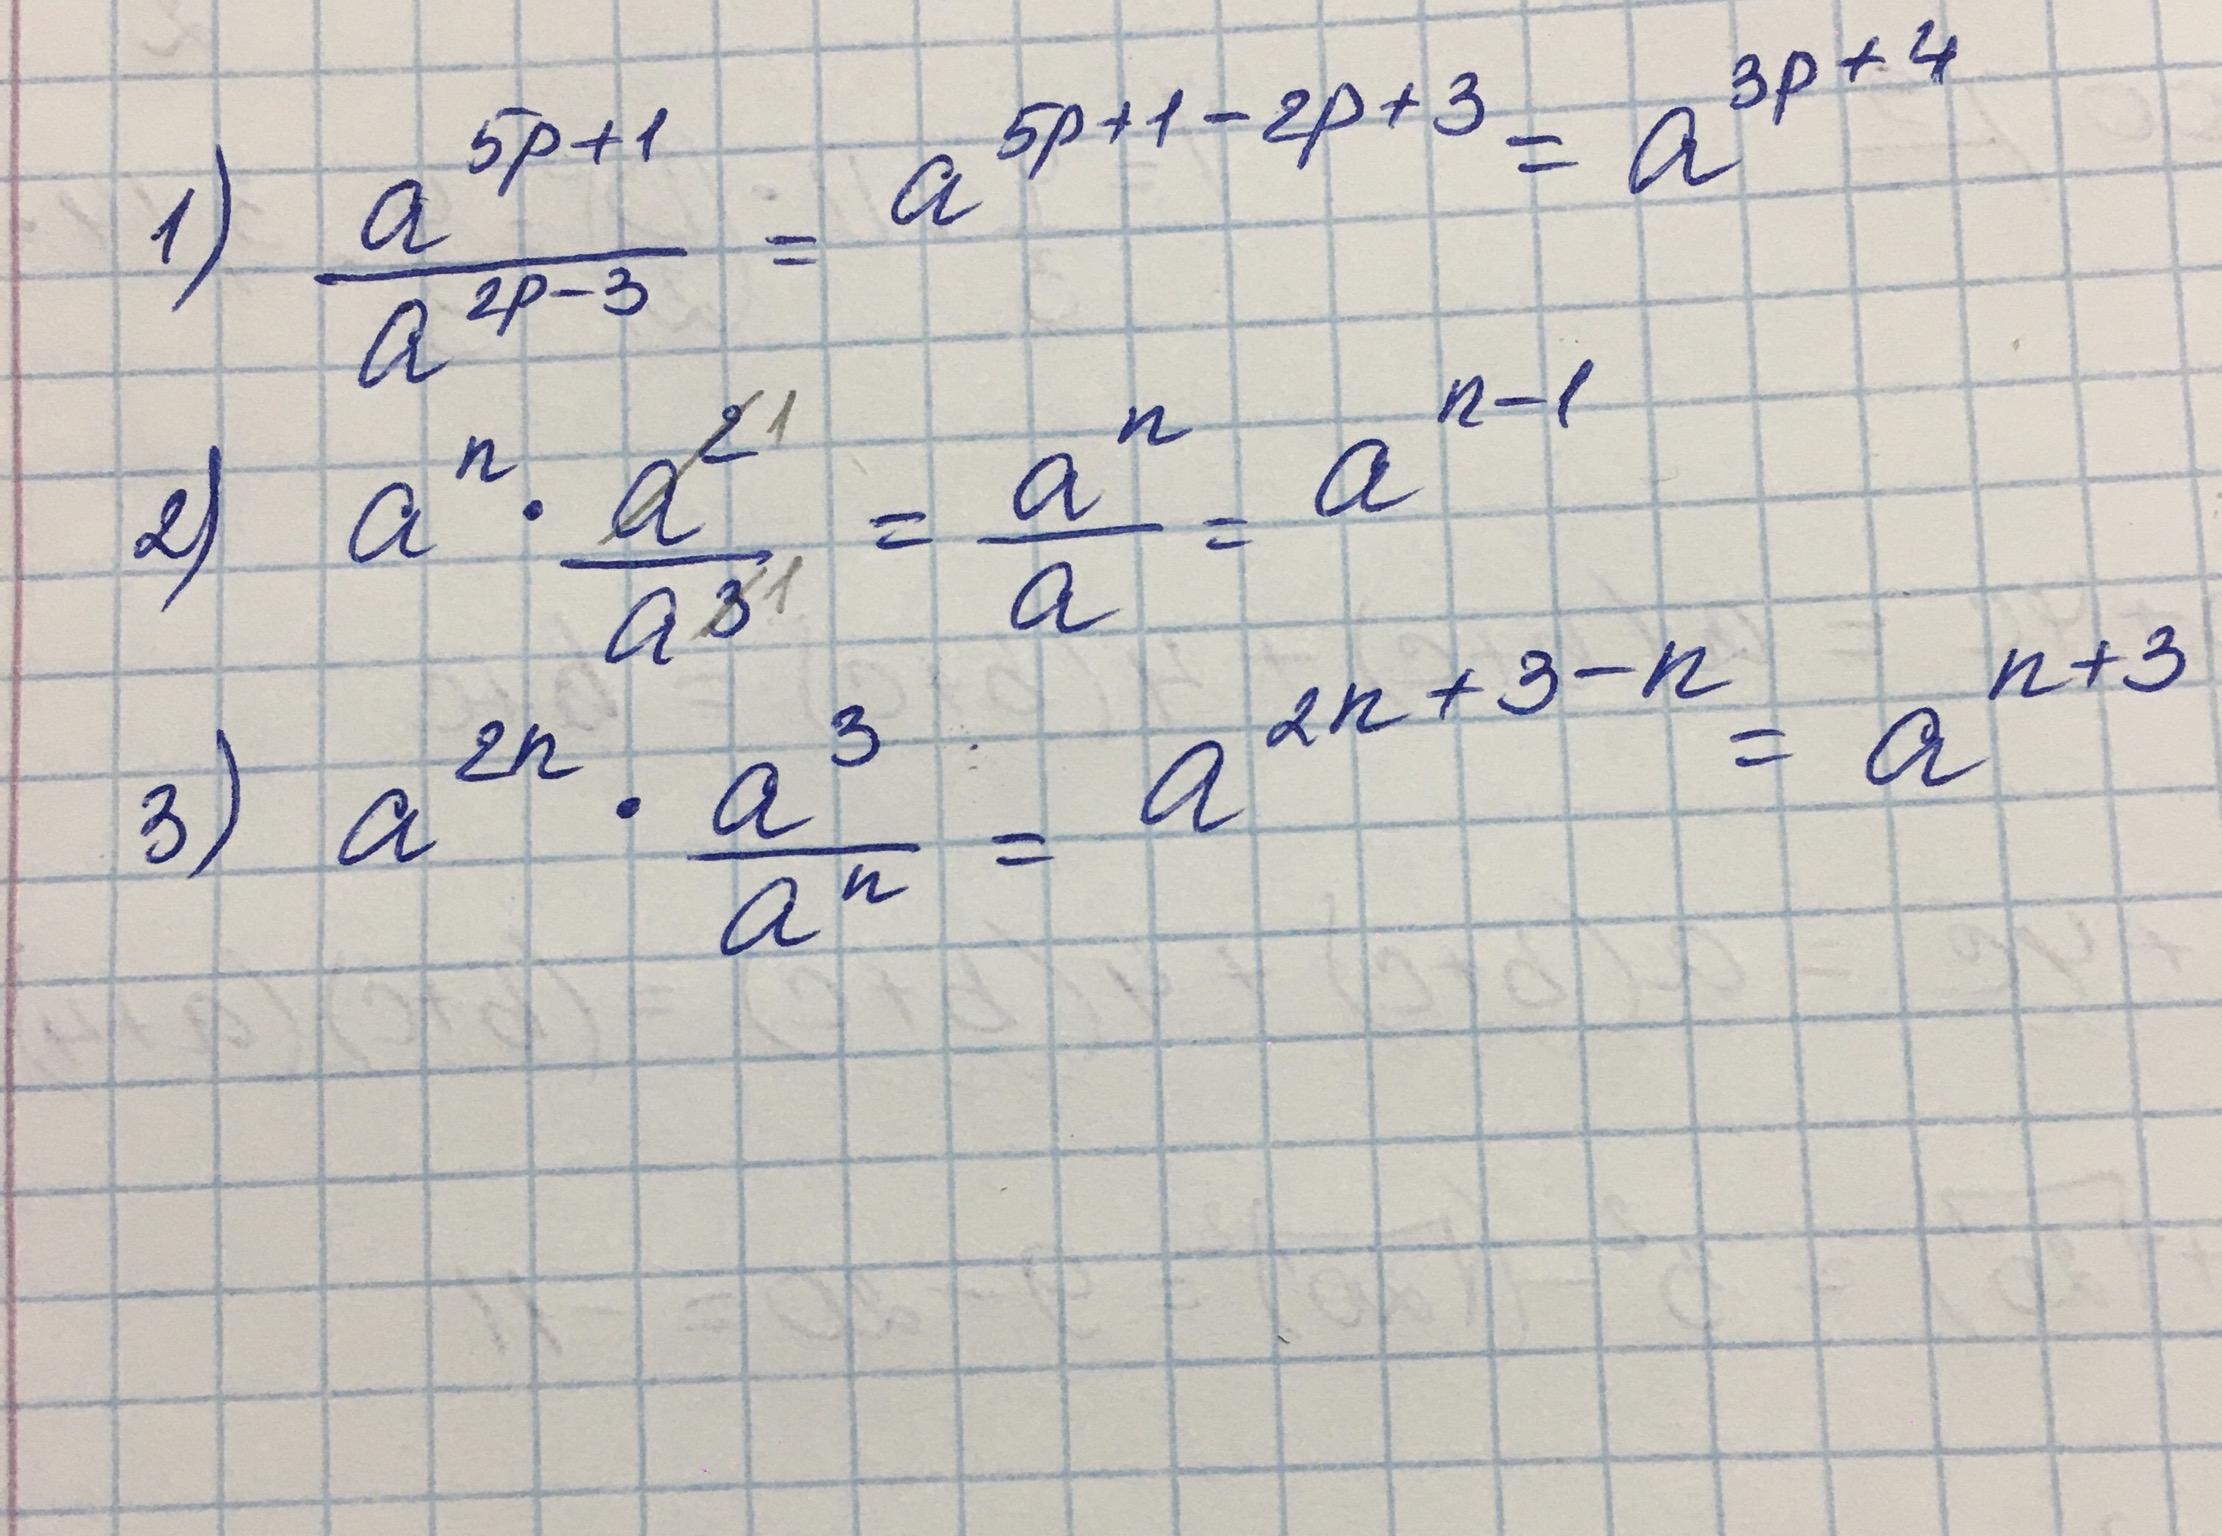 1) a^{5p+1}/a^{2p-3} = a^{5p+1-2p+3} = a^{3p+4}
2) a^n · a^2 1/a^3 1 = a^n/a = a^{n-1}
3) a^{2n} · a^3/a^n = a^{2n+3-n} = a^{n+3}